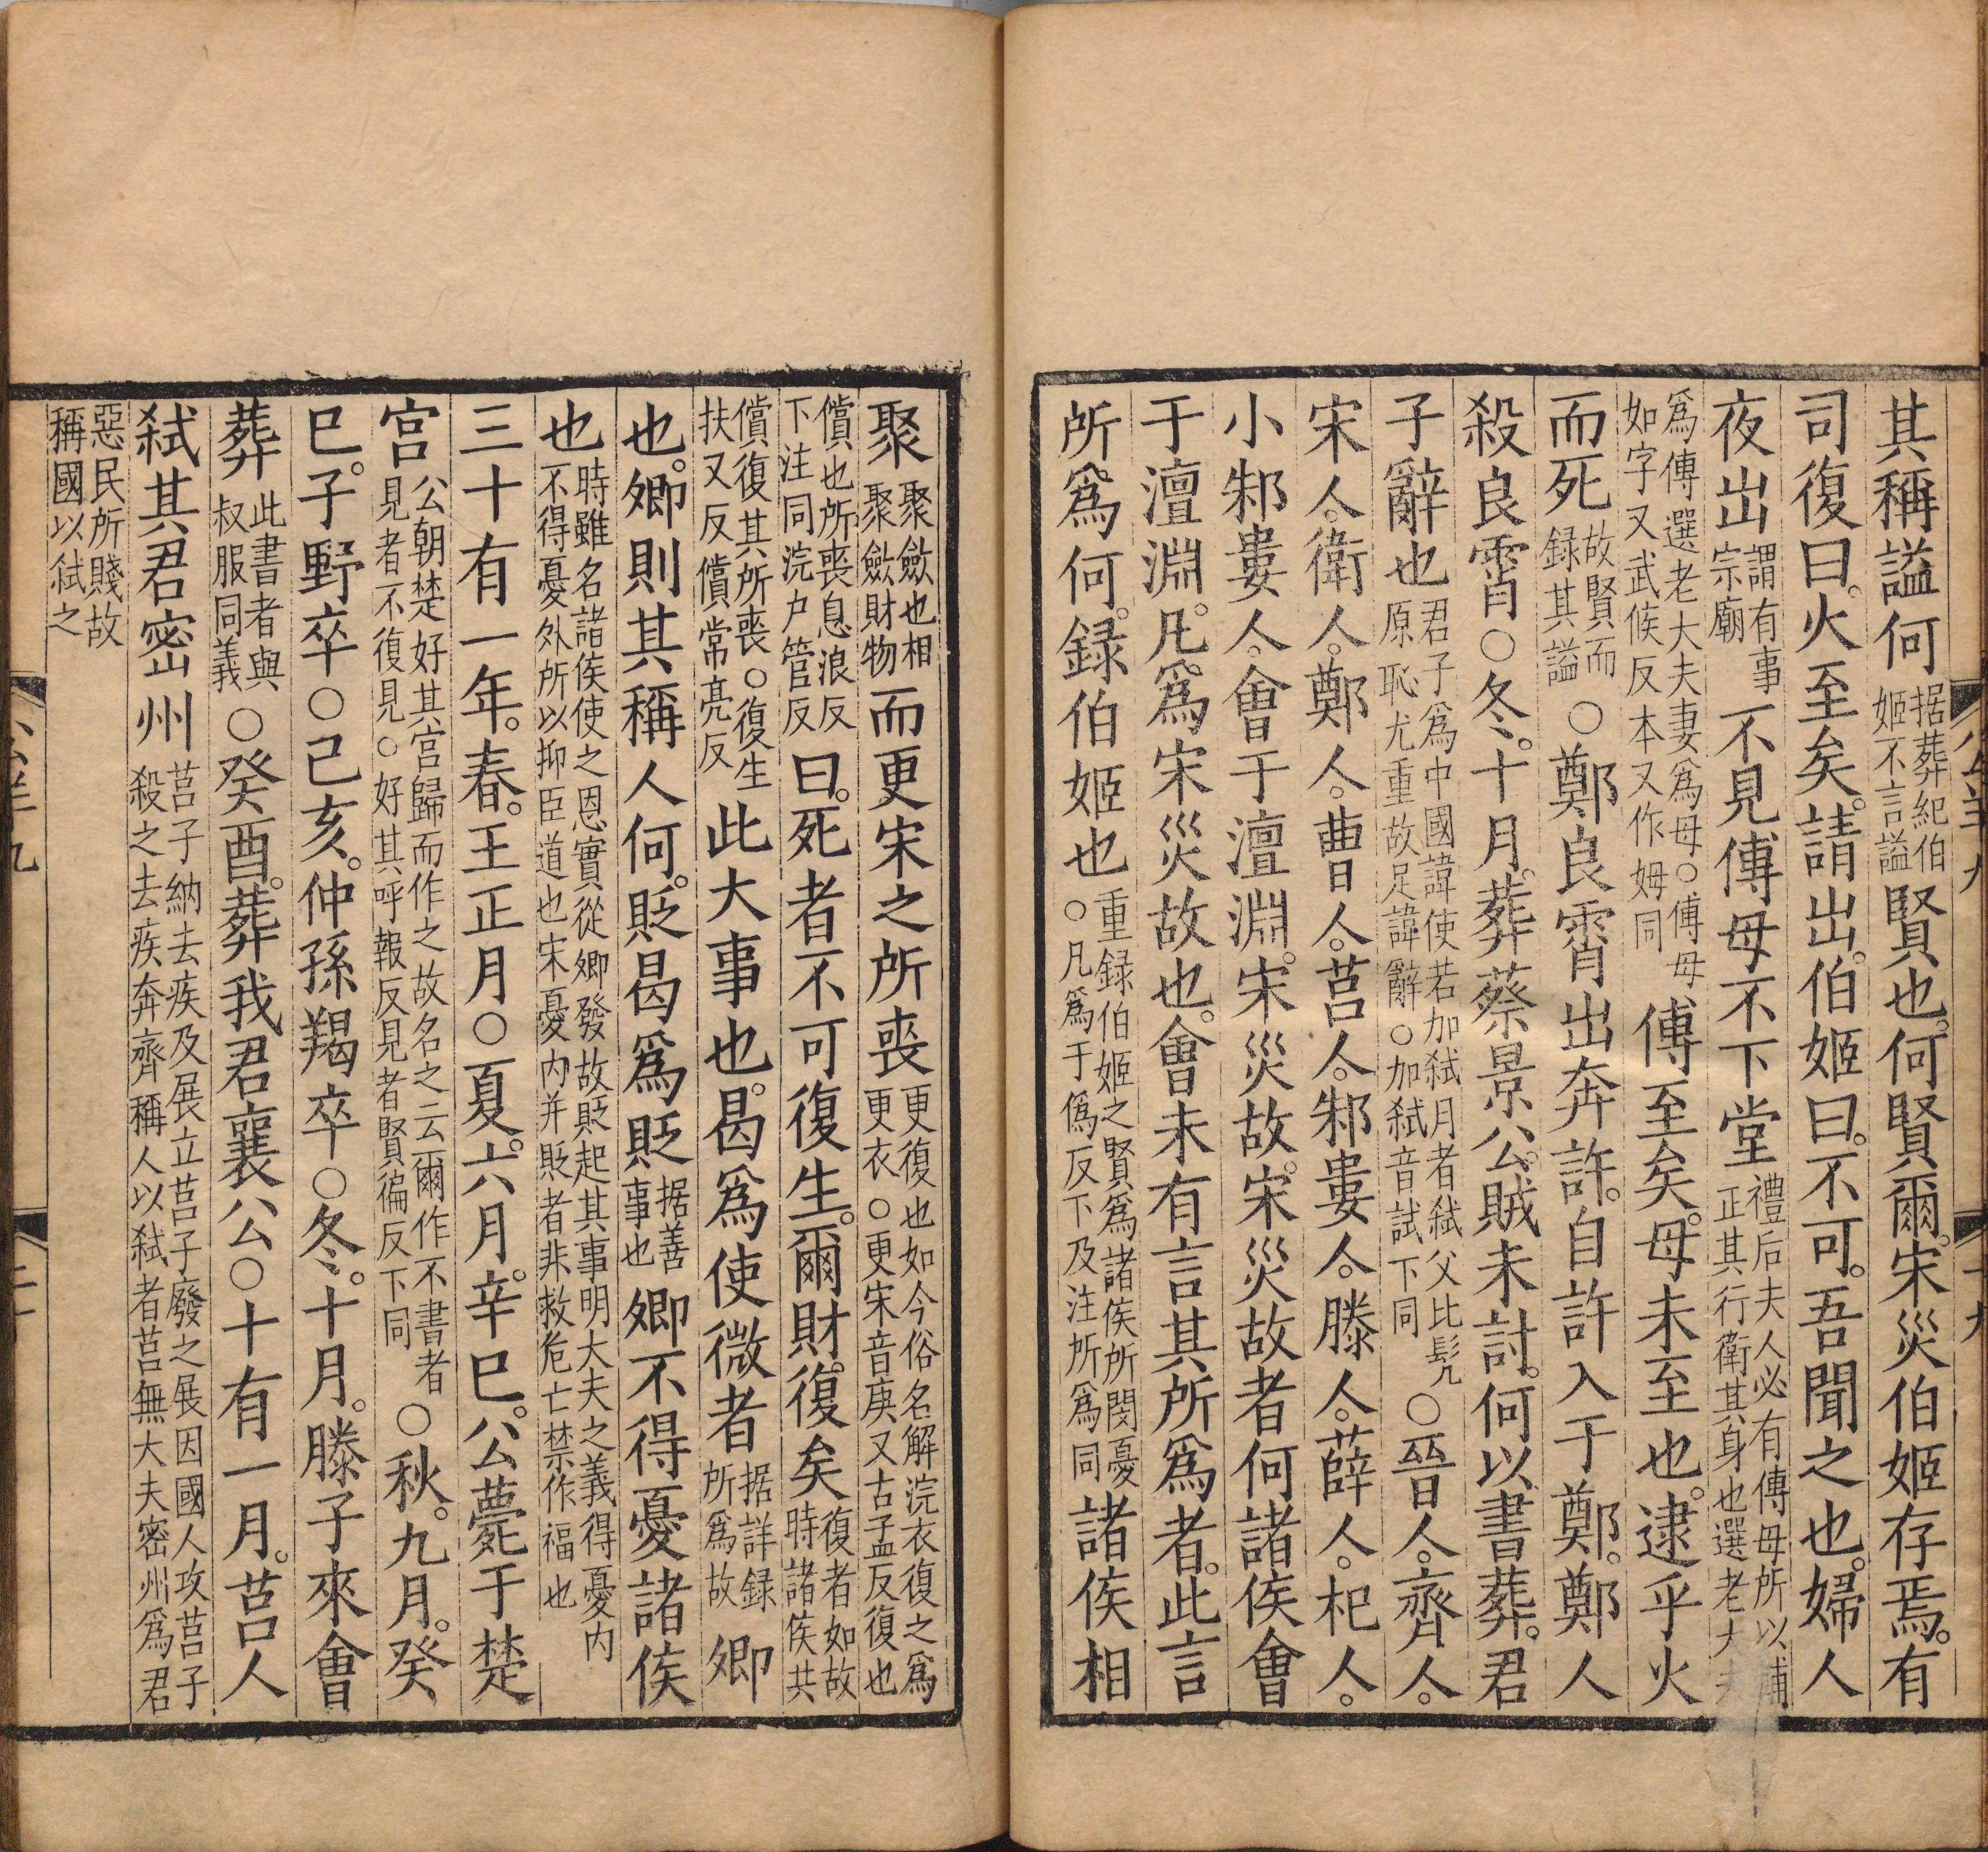 其稱謚何据葬紀伯姬不言謚賢也。何賢爾。宋災伯姬存焉。有
司復曰。火至矣。請出。伯姬曰。不可。吾聞之也。婦人
夜出謂有事宗廟不見傅母不下堂禮后夫人必有傅母所以輔正其行衛其身也選老大夫
爲傅選老大夫妻爲母○傅母如字又武候反本又作姆同傅至矣。母未至也。逮乎火
而死故賢而録其謚○鄭良霄出奔許。自許入于鄭。鄭人
殺良霄○冬。十月。葬蔡景公。賊未討。何以書葬。君
子辭也君子爲中國諱使若加弑月者弑父比髡原恥尤重故足諱辭○加弑音試下同○晉人。齊人。
宋人。衛人。鄭人。曹人。莒人。邾婁人。滕人。薛人。杞人。
小邾婁人。會于澶淵。宋災故。宋災故者何諸侯會
于澶淵。凡。爲宋災故也。會未有言其所爲者。此言
所爲何。録伯姬也重録伯姬之賢爲諸侯所閔憂○凡爲于僞反下及注所爲同諸侯相
聚聚斂也相聚斂財物而更宋之所喪更復也如今俗名解浣衣復之爲更衣○更宋音庚又古孟反復也
償也所喪息浪反下注同浣户管反曰。死者不可復生。爾財。復矣復者如故時諸侯共
償復其所喪○復生扶又反償常亮反此大事也。曷爲使微者据詳録所爲故卿
也。卿則其稱人何。貶曷爲貶据善事也卿不得憂諸侯
也時雖名諸侯使之恩實從卿發故貶起其事明大夫之義得憂内不得憂外所以抑臣道也宋憂内并貶者非救危亡禁作福也
三十有一年。春。王正月○夏。六月。辛巳。公薨于楚
宮公朝楚好其宮歸而作之故名之云爾作不書者見者不復見○好其呼報反見者賢徧反下同○秋。九月。癸
巳。子野卒○己亥。仲孫羯卒○冬。十月。滕子來會
葬此書者與叔服同義○癸酉。葬我君襄公○十有一月。莒人
弑其君密州莒子納去疾及展立莒子廢之展因國人攻莒子殺之去疾奔齊稱人以弑者莒無大夫密州爲君
惡民所賤故稱國以弑之